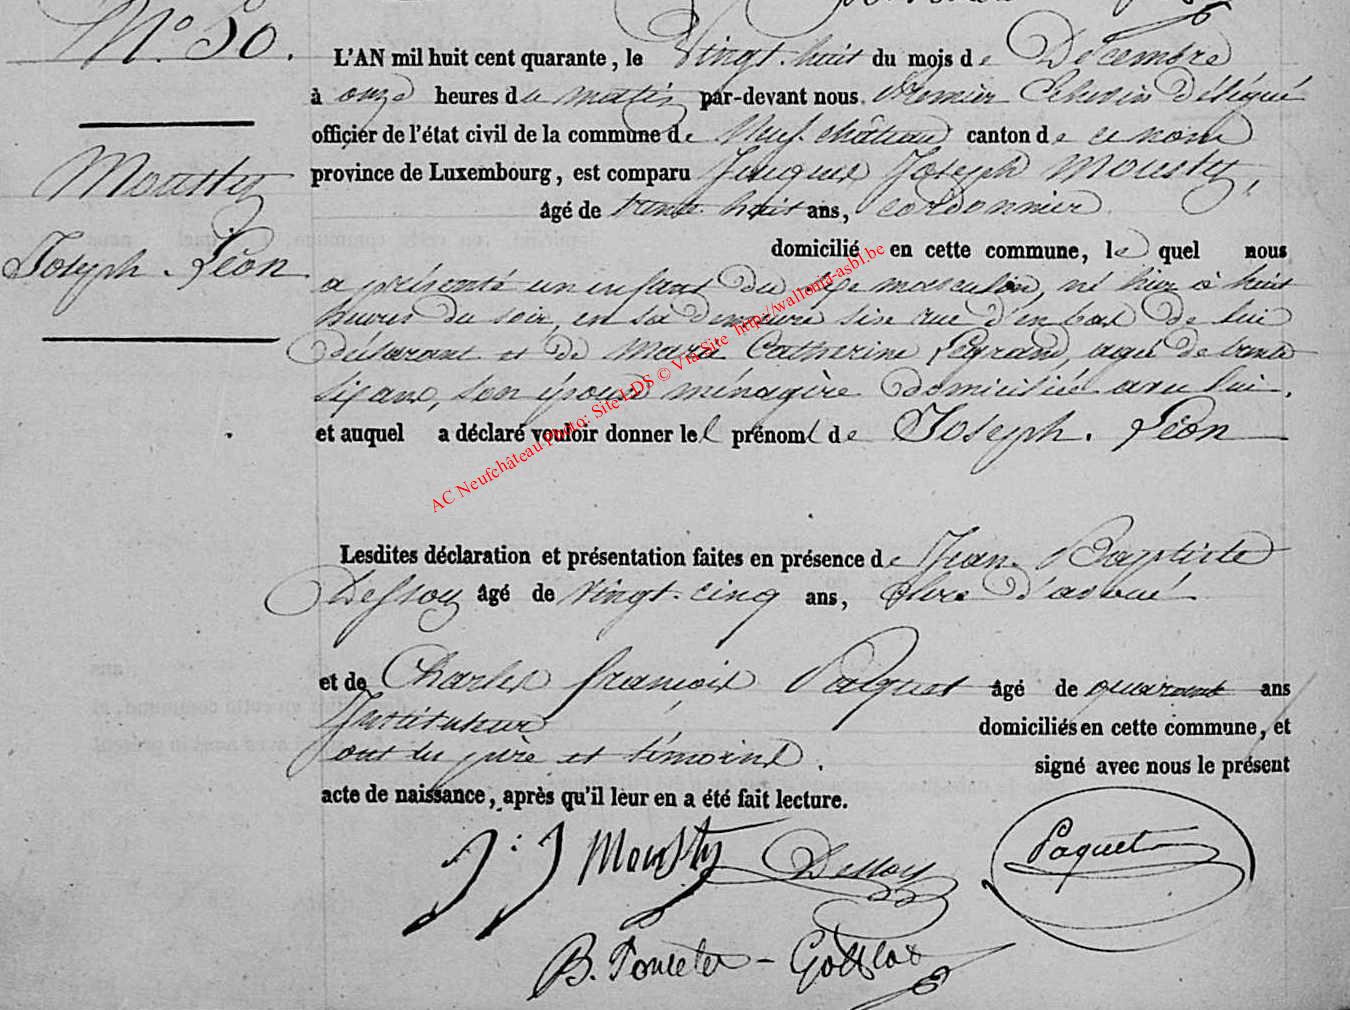 N° 50.
L'AN mil huit cent quarante, le Vingt-huit du mois de Décembre
à onze heures du matin par-devant nous premier Echevin délégué
officier de l'état civil de la commune de Neufchâteau canton de ce nom
Mousty
province de Luxembourg, est comparu Jacques Joseph Mousty,
âgé de trente huit ans, cordonnier
Joseph-Léon
domicilié en cette commune, le quel nous
a présenté un enfant du sexe masculin, né hier à huit
heures du soir, en sa demeure sise rue d'en bas de lui
déclarant et de Marie Catherine Legrand, agée de trente
six ans, son épouse ménagère domiciliée avec lui.
et auquel a déclaré vouloir donner le prénom de Joseph-Léon
Lesdites déclaration et présentation faites en présence de Jean-Baptiste
Dessoy âgé de vingt-cinq ans, clerc d'avoué
et de Charles françois Paquet âgé de quarante ans
Instituteur domiciliés en cette commune, et
ont les père et témoins. signé avec nous le présent
acte de naissance, après qu'il leur en a été fait lecture.
J: J Mousty Dessoy Paquet
B. Poncelet - Gofflot
AC Neufchâteau Photo: Site LDS © Via Site http://wallonia-asbl.be